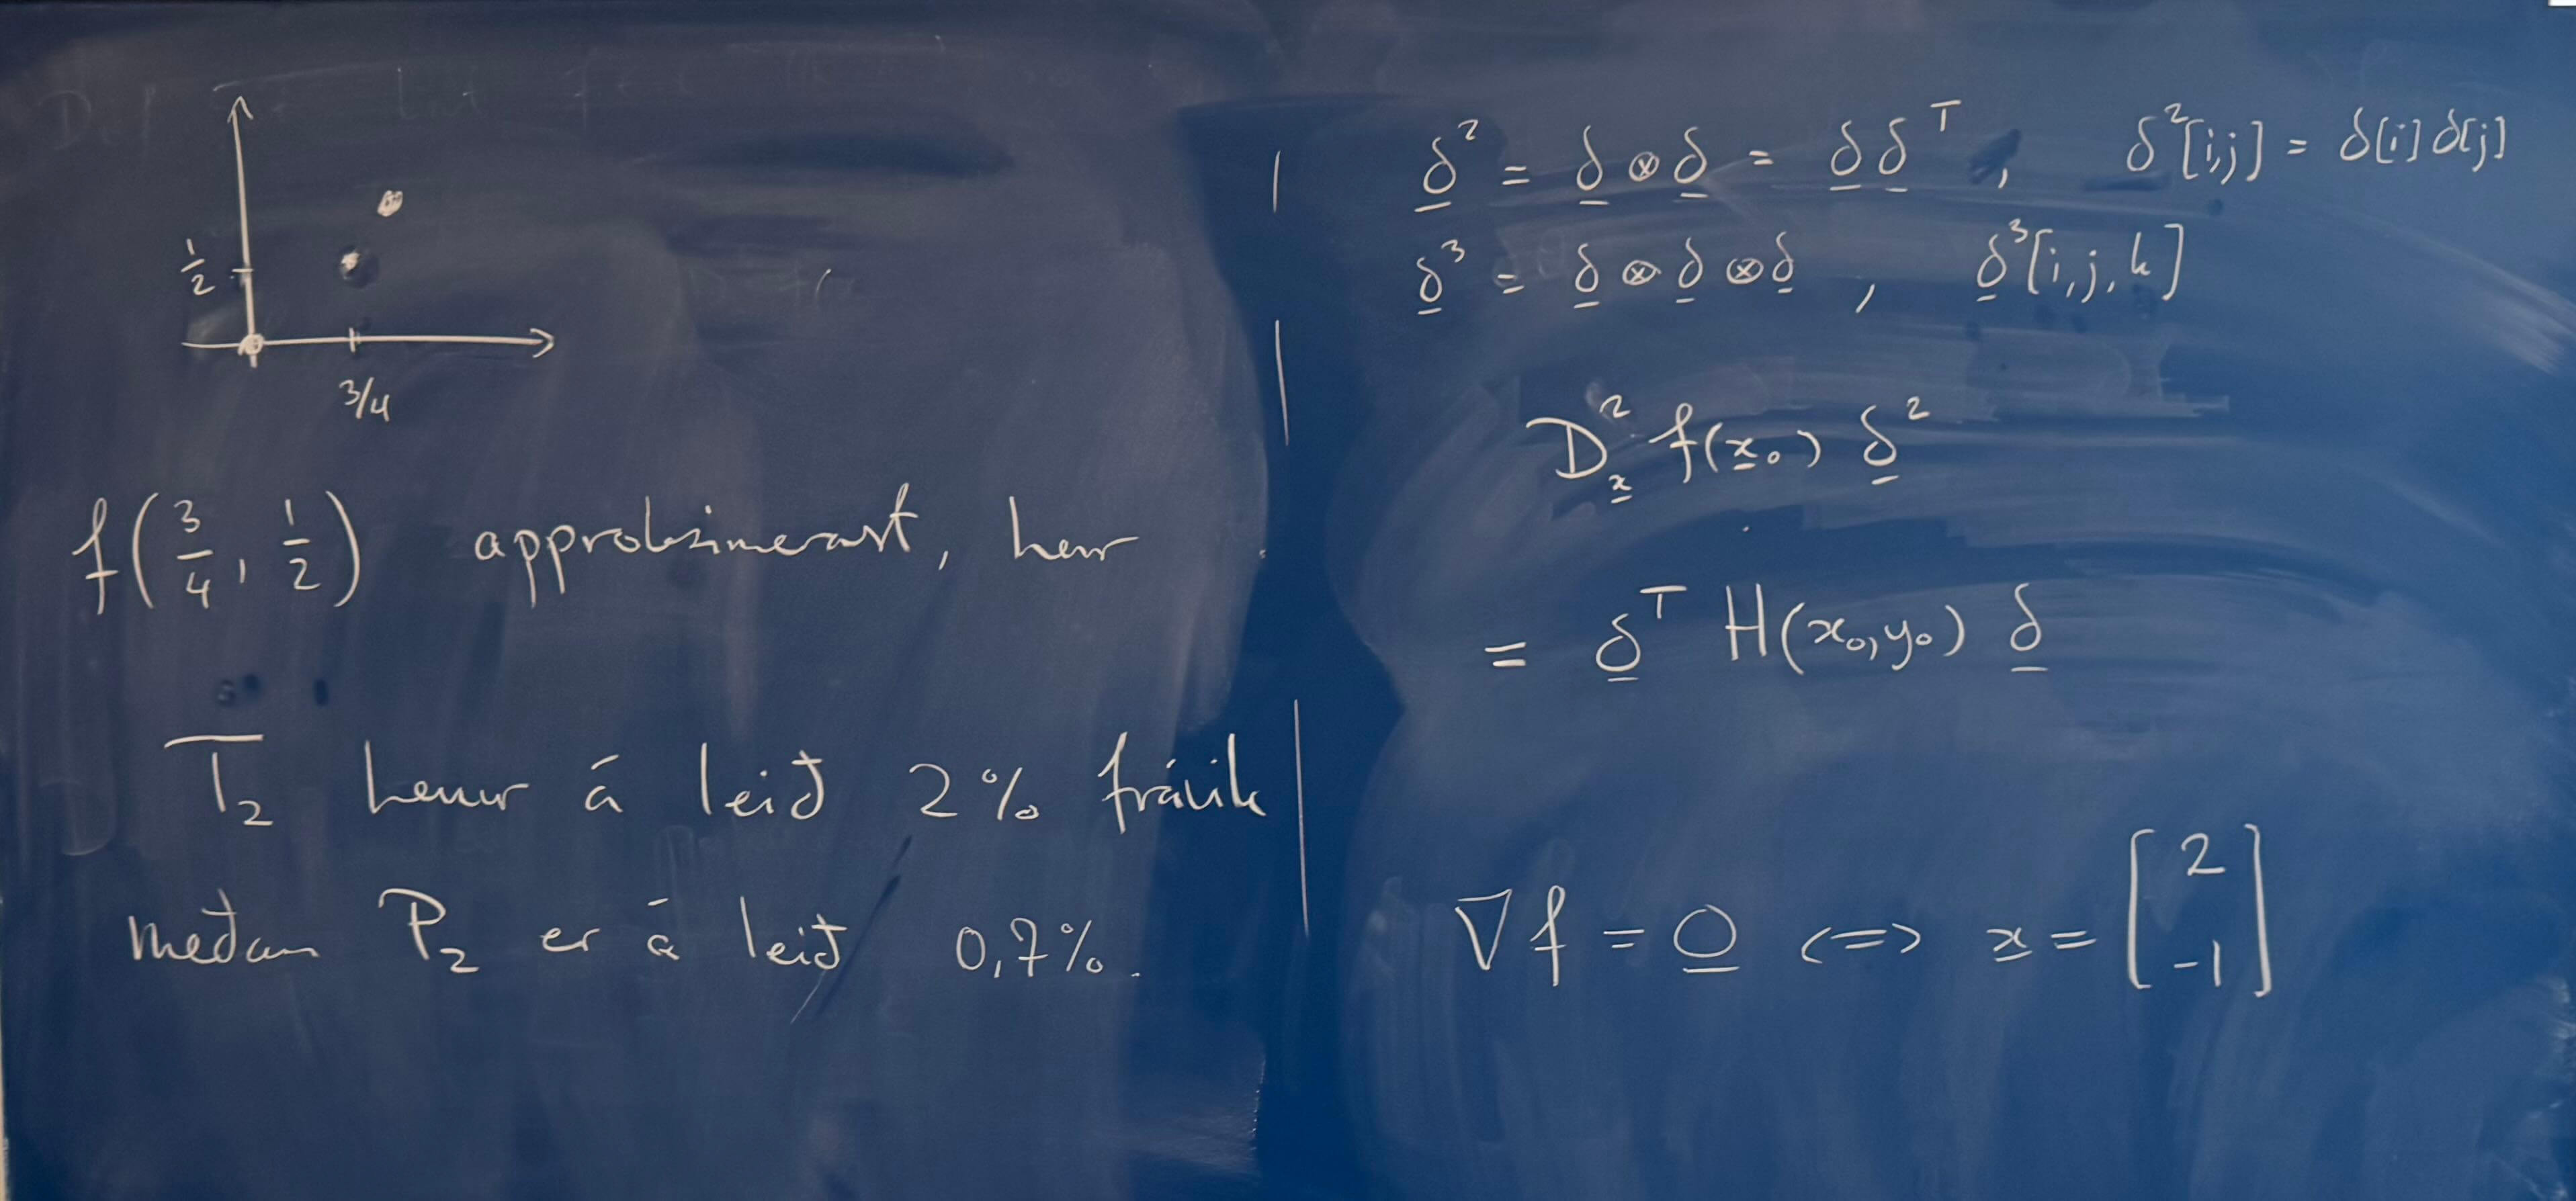 1/2
3/4
f(3/4, 1/2) approksimerast, har
T₂ hevur á leið 2% frávik
meðan P₂ er á leið 0,7%.
δ² = δ ⊗ δ = δδᵀ, δ²[i,j] = δ[i]δ[j]
δ³ = δ ⊗ δ ⊗ δ, δ³[i,j,k]
D²ₓ f(x₀) δ²
= δᵀ H(x₀,y₀) δ
∇f = 0 <=> x = [2
-1]